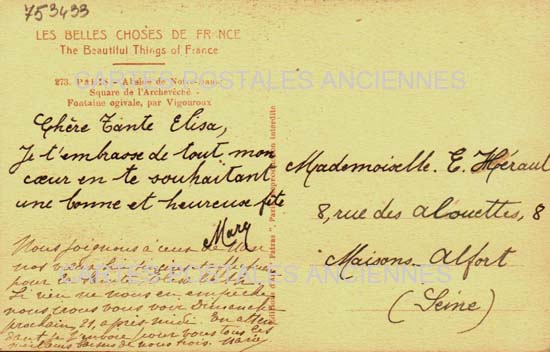 753433
LES BELLES CHOSES DE FRANCE
The Beautiful Things of France
273. PARIS - Abside de Notre-Dame
Square de l'Archevêché -
Fontaine ogivale, par Vigouroux
CARTES POSTALES ANCIENNES
Chère Tante Elisa,
Je t'embrasse de tout mon
cœur en te souhaitant
une bonne et heureuse fête
Mary
Nous joignons à ceux de
nos
pour
Si rien ne nous en empêche
nous irons vous voir Dimanche
prochain 21, après midi. En atten
dant je t'envoie pour vous tous les
meilleurs baisers de nous trois. Marie
Paris reproduction interdite
Mademoiselle. E. Héraul
8, rue des alouettes, 8
Maisons. Alfort
(Seine)
CARTES POSTALES ANCIENNES